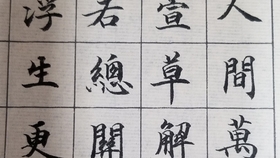 人間萬
萱草解
若總關
浮生更